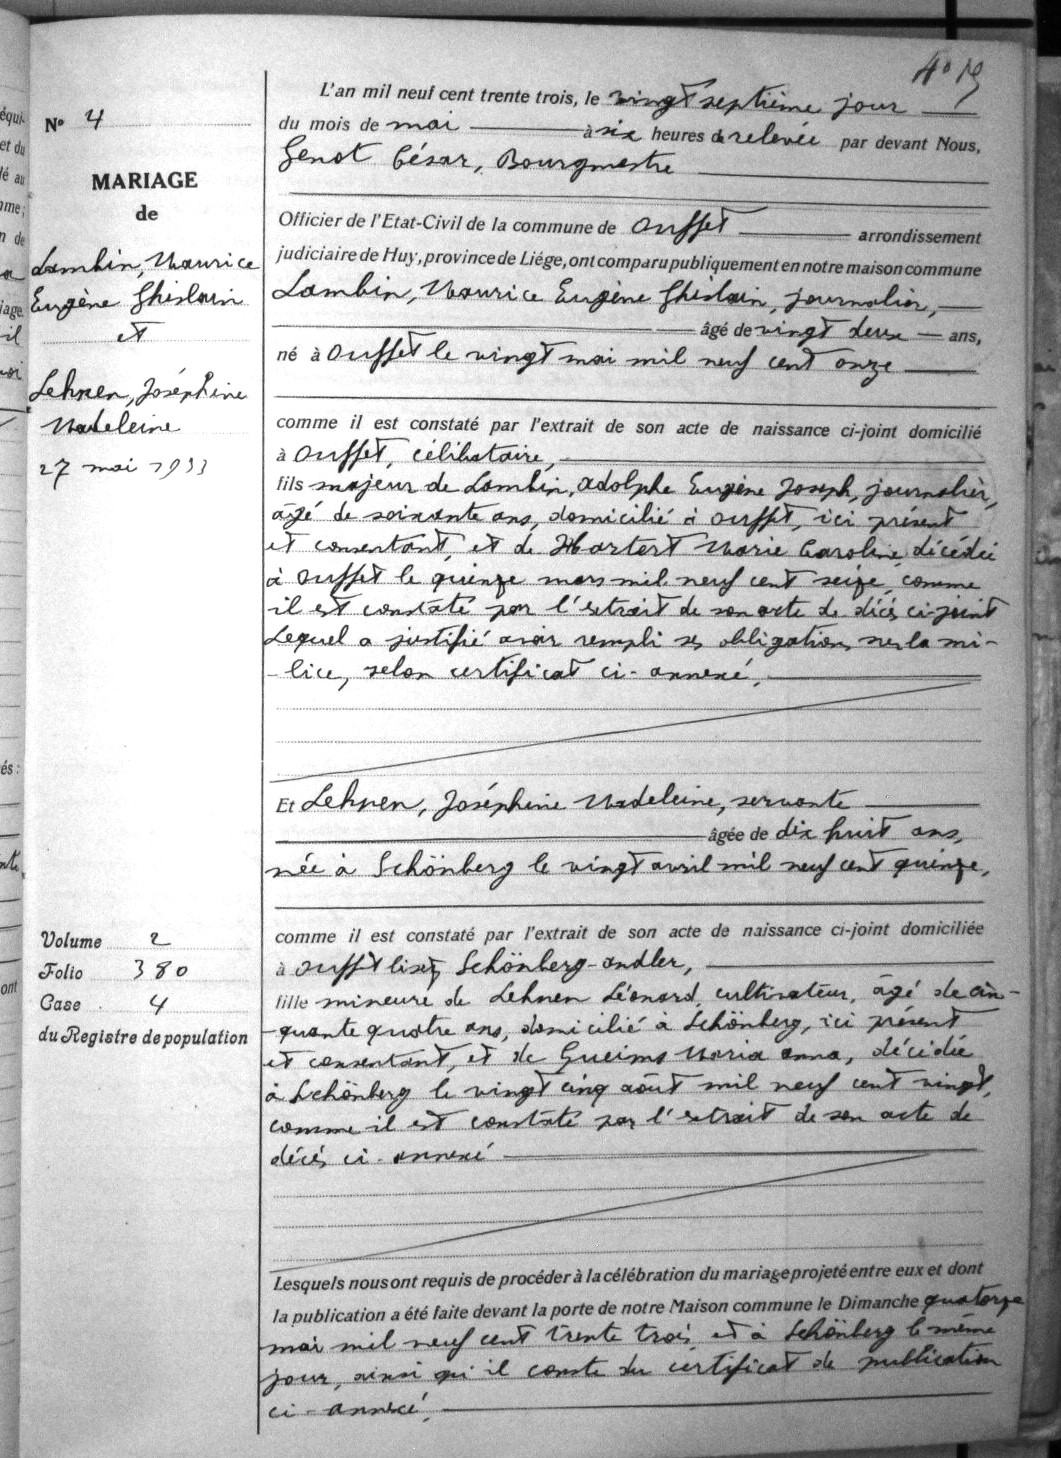 4º
Nº 4
MARIAGE
de
Lambin, Maurice
Eugène Ghislain
et
Lehnen, Joséphine
Madeleine
27 mai 1933
Volume 2
Folio 380
Case 4
du Registre de population
L'an mil neuf cent trente trois, le vingt septième jour
du mois de mai à six heures de relevée par devant Nous,
Genot César, Bourgmestre
Officier de l'Etat-Civil de la commune de Ouffet arrondissement
judiciaire de Huy, province de Liége, ont comparu publiquement en notre maison commune
Lambin, Maurice Eugène Ghislain, journalier,
âgé de vingt deux ans,
né à Ouffet le vingt mai mil neuf cent onze
comme il est constaté par l'extrait de son acte de naissance ci-joint domicilié
à Ouffet, célibataire,
fils majeur de Lambin, Adolphe Eugène Joseph, journalier,
âgé de soixante ans, domicilié à Ouffet, ici présent
et consentant, et de Hartert Marie Caroline, décédée
à Ouffet le quinze mars mil neuf cent seize, comme
il est constaté par l'extrait de son acte de décès ci-joint
Lequel a justifié avoir rempli ses obligations sur la mi-
-lice, selon certificat ci-annexé.
Et Lehnen, Joséphine Madeleine, servante
âgée de dix huit ans,
née à Schönberg le vingt avril mil neuf cent quinze,
comme il est constaté par l'extrait de son acte de naissance ci-joint domiciliée
à Ouffet Schönberg-Andler,
fille mineure de Lehnen Léonard, cultivateur, âgé de cin-
-quante quatre ans, domicilié à Schönberg, ici présent
et consentant, et de Gueims Maria Anna, décédée
à Schönberg le vingt cinq août mil neuf cent vingt,
comme il est constaté par l'extrait de son acte de
décès ci-annexé
Lesquels nous ont requis de procéder à la célébration du mariage projeté entre eux et dont
la publication a été faite devant la porte de notre Maison commune le Dimanche quatorze
mai mil neuf cent trente trois et à Schönberg le même
jour, ainsi qu'il conste du certificat de publication
ci-annexé.